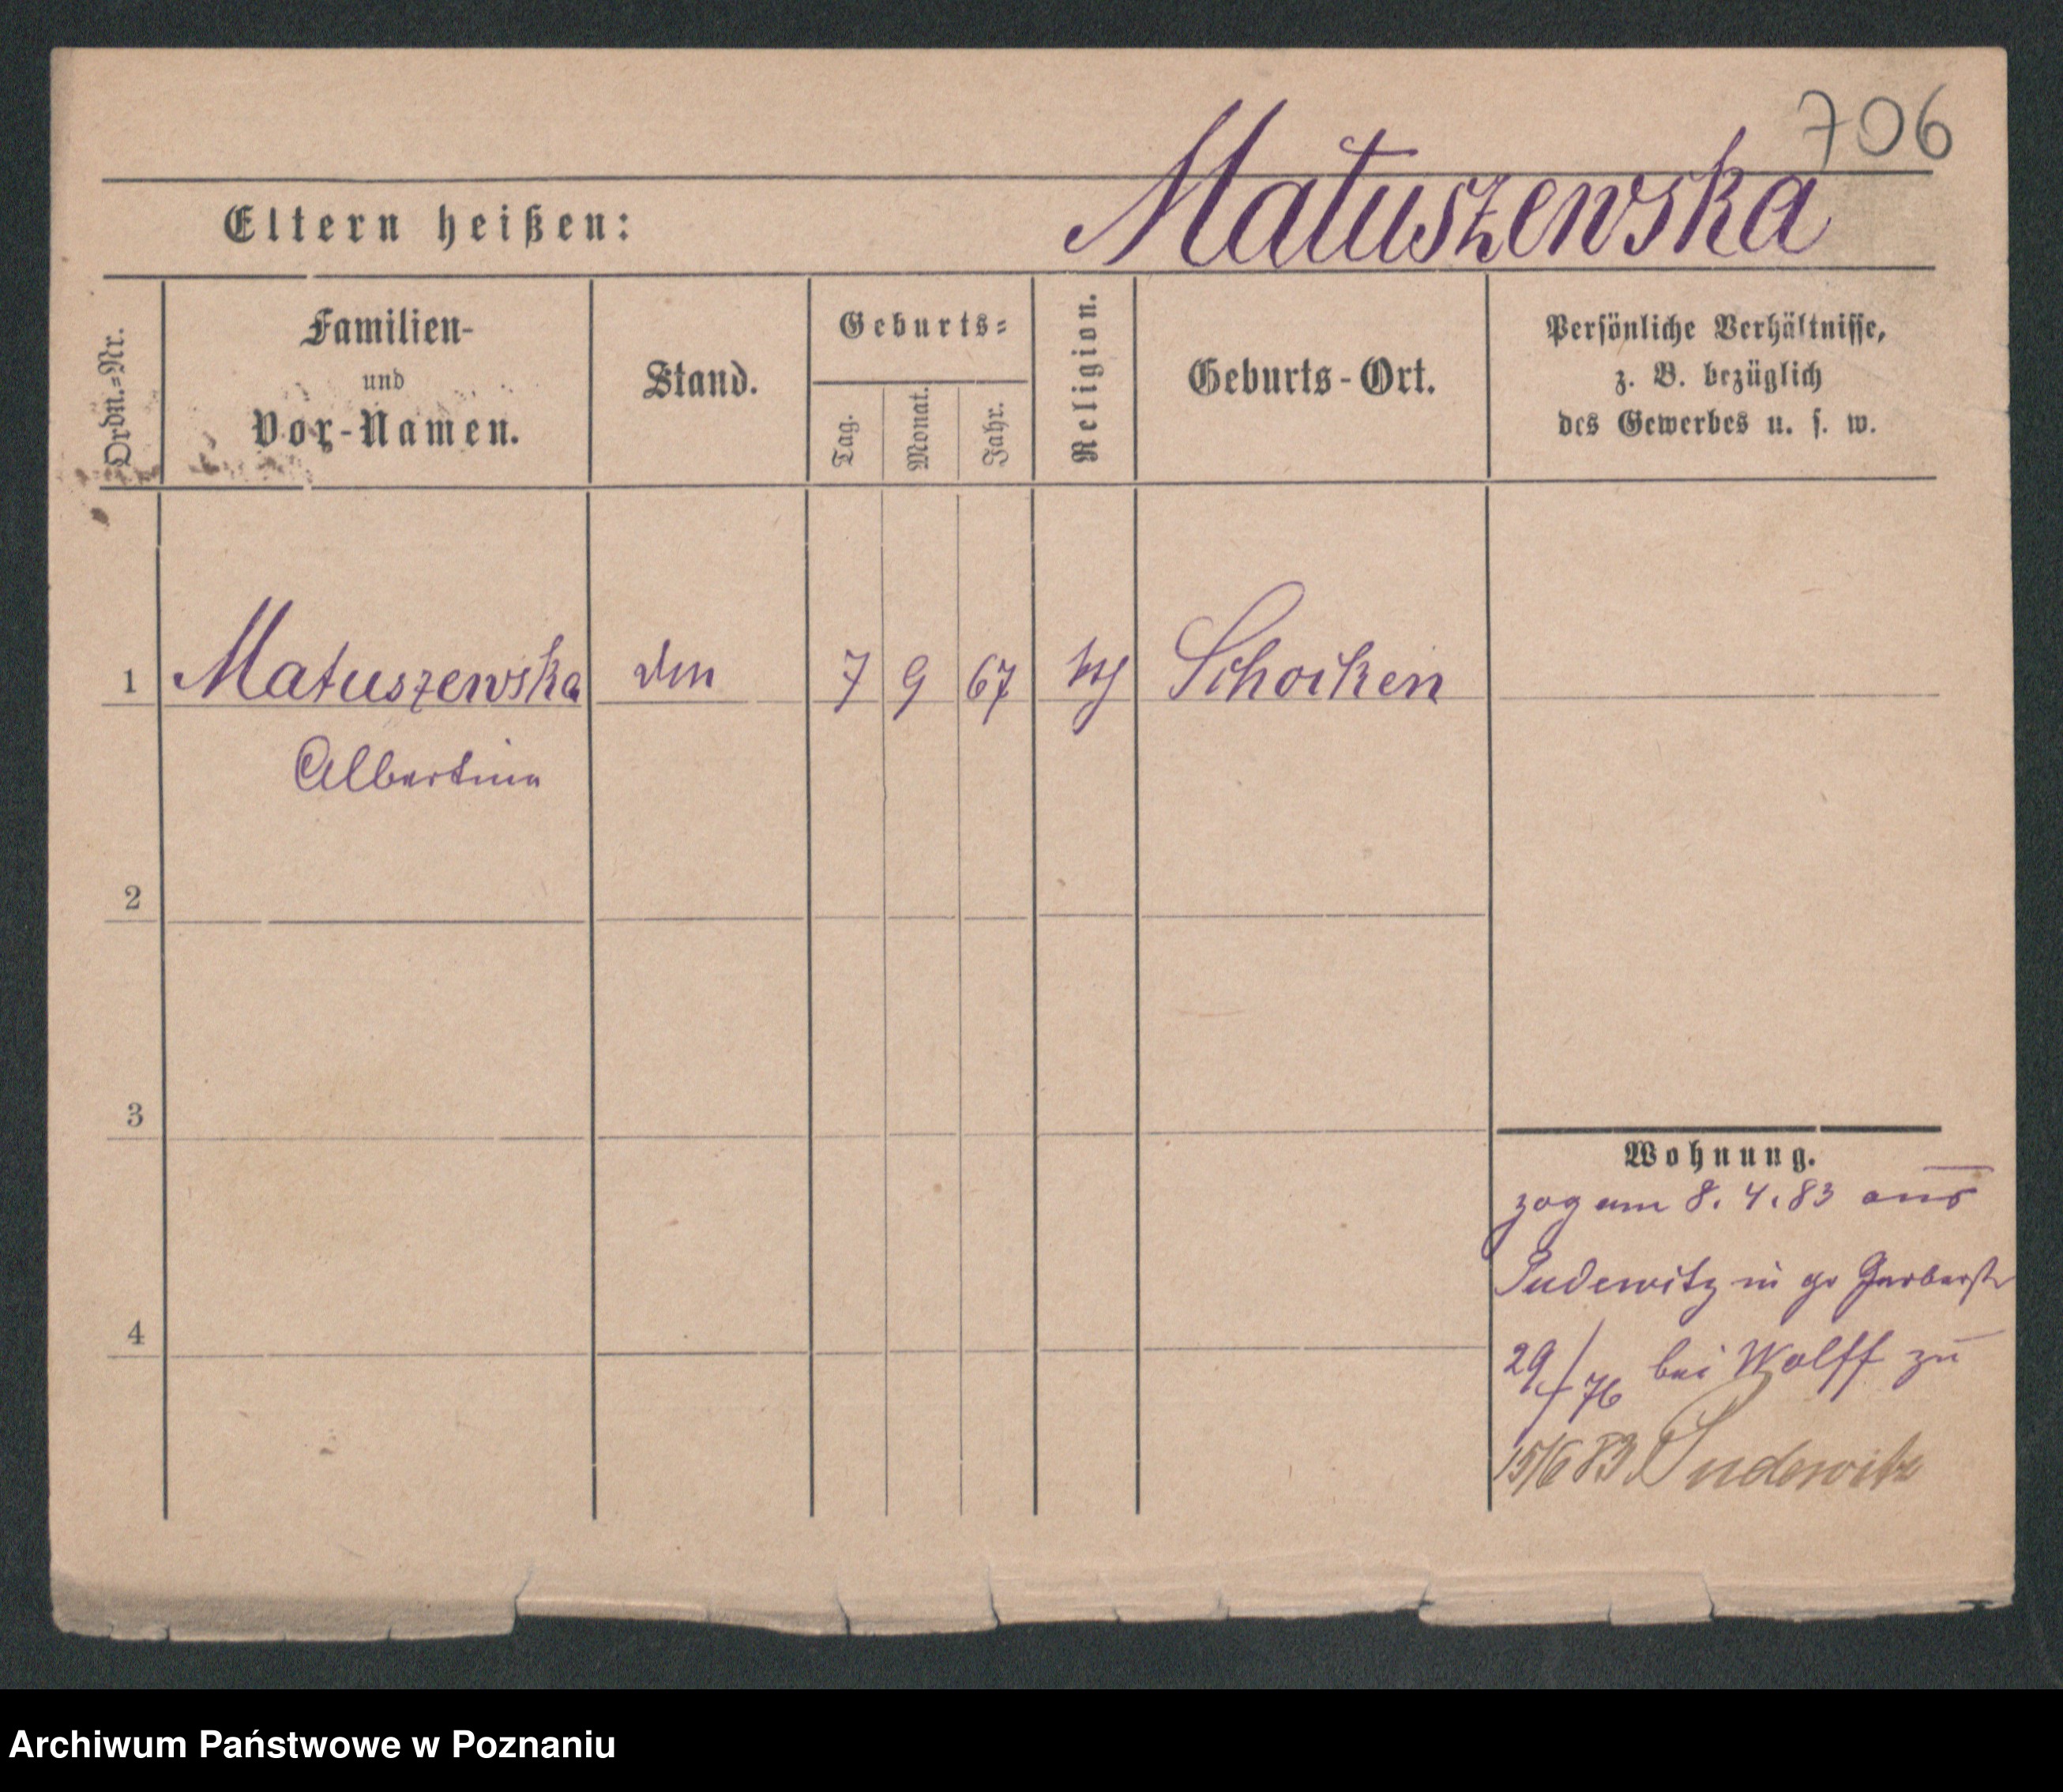 706
Matuszewska
Eltern heißen:
Ordn.-Nr.
Familien-
und
Vor-Namen.
Stand.
Geburts-
Tag.
Monat.
Jahr.
Religion.
Geburts-Ort.
Persönliche Verhältnisse,
z. B. bezüglich
des Gewerbes u. s. w.
1 Matuszewska 7 9 67 Schocken
Albertine
2
3
4
Wohnung.
zog am 8. 4. 83 aus
Pudewitz in gr Gerberstr
29/ 76 bei Wolff zu
15/6 83 Pudewitz
Archiwum Państwowe w Poznaniu